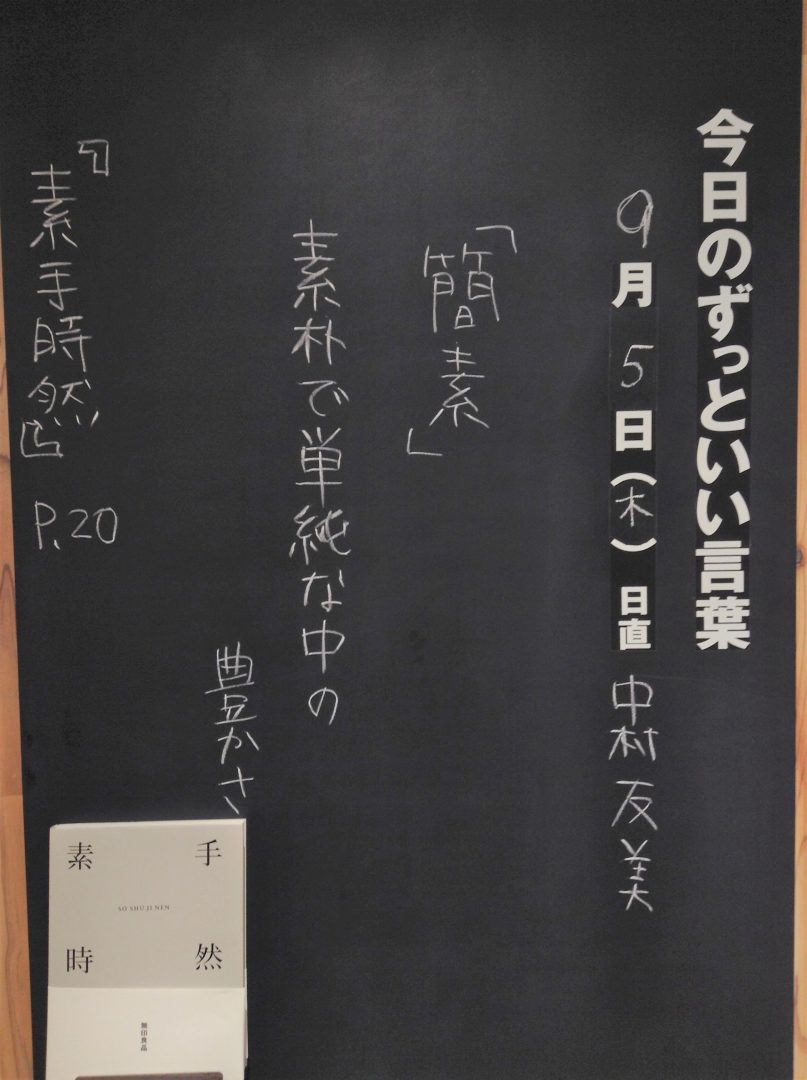 今日のずっといい言葉
9月5日(木) 日直 中村友美
「簡素」
素朴で単純な中の
豊かさ
『素手時然』 P.20
素手時然
SO SHU JI NEN
無印良品